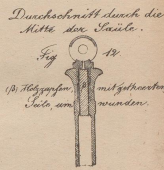 Durchschnitt durch die
Mitte der Säule.
Fig 12.
(β) Holzzapfen, β mit getheerten
Seile, umwunden.